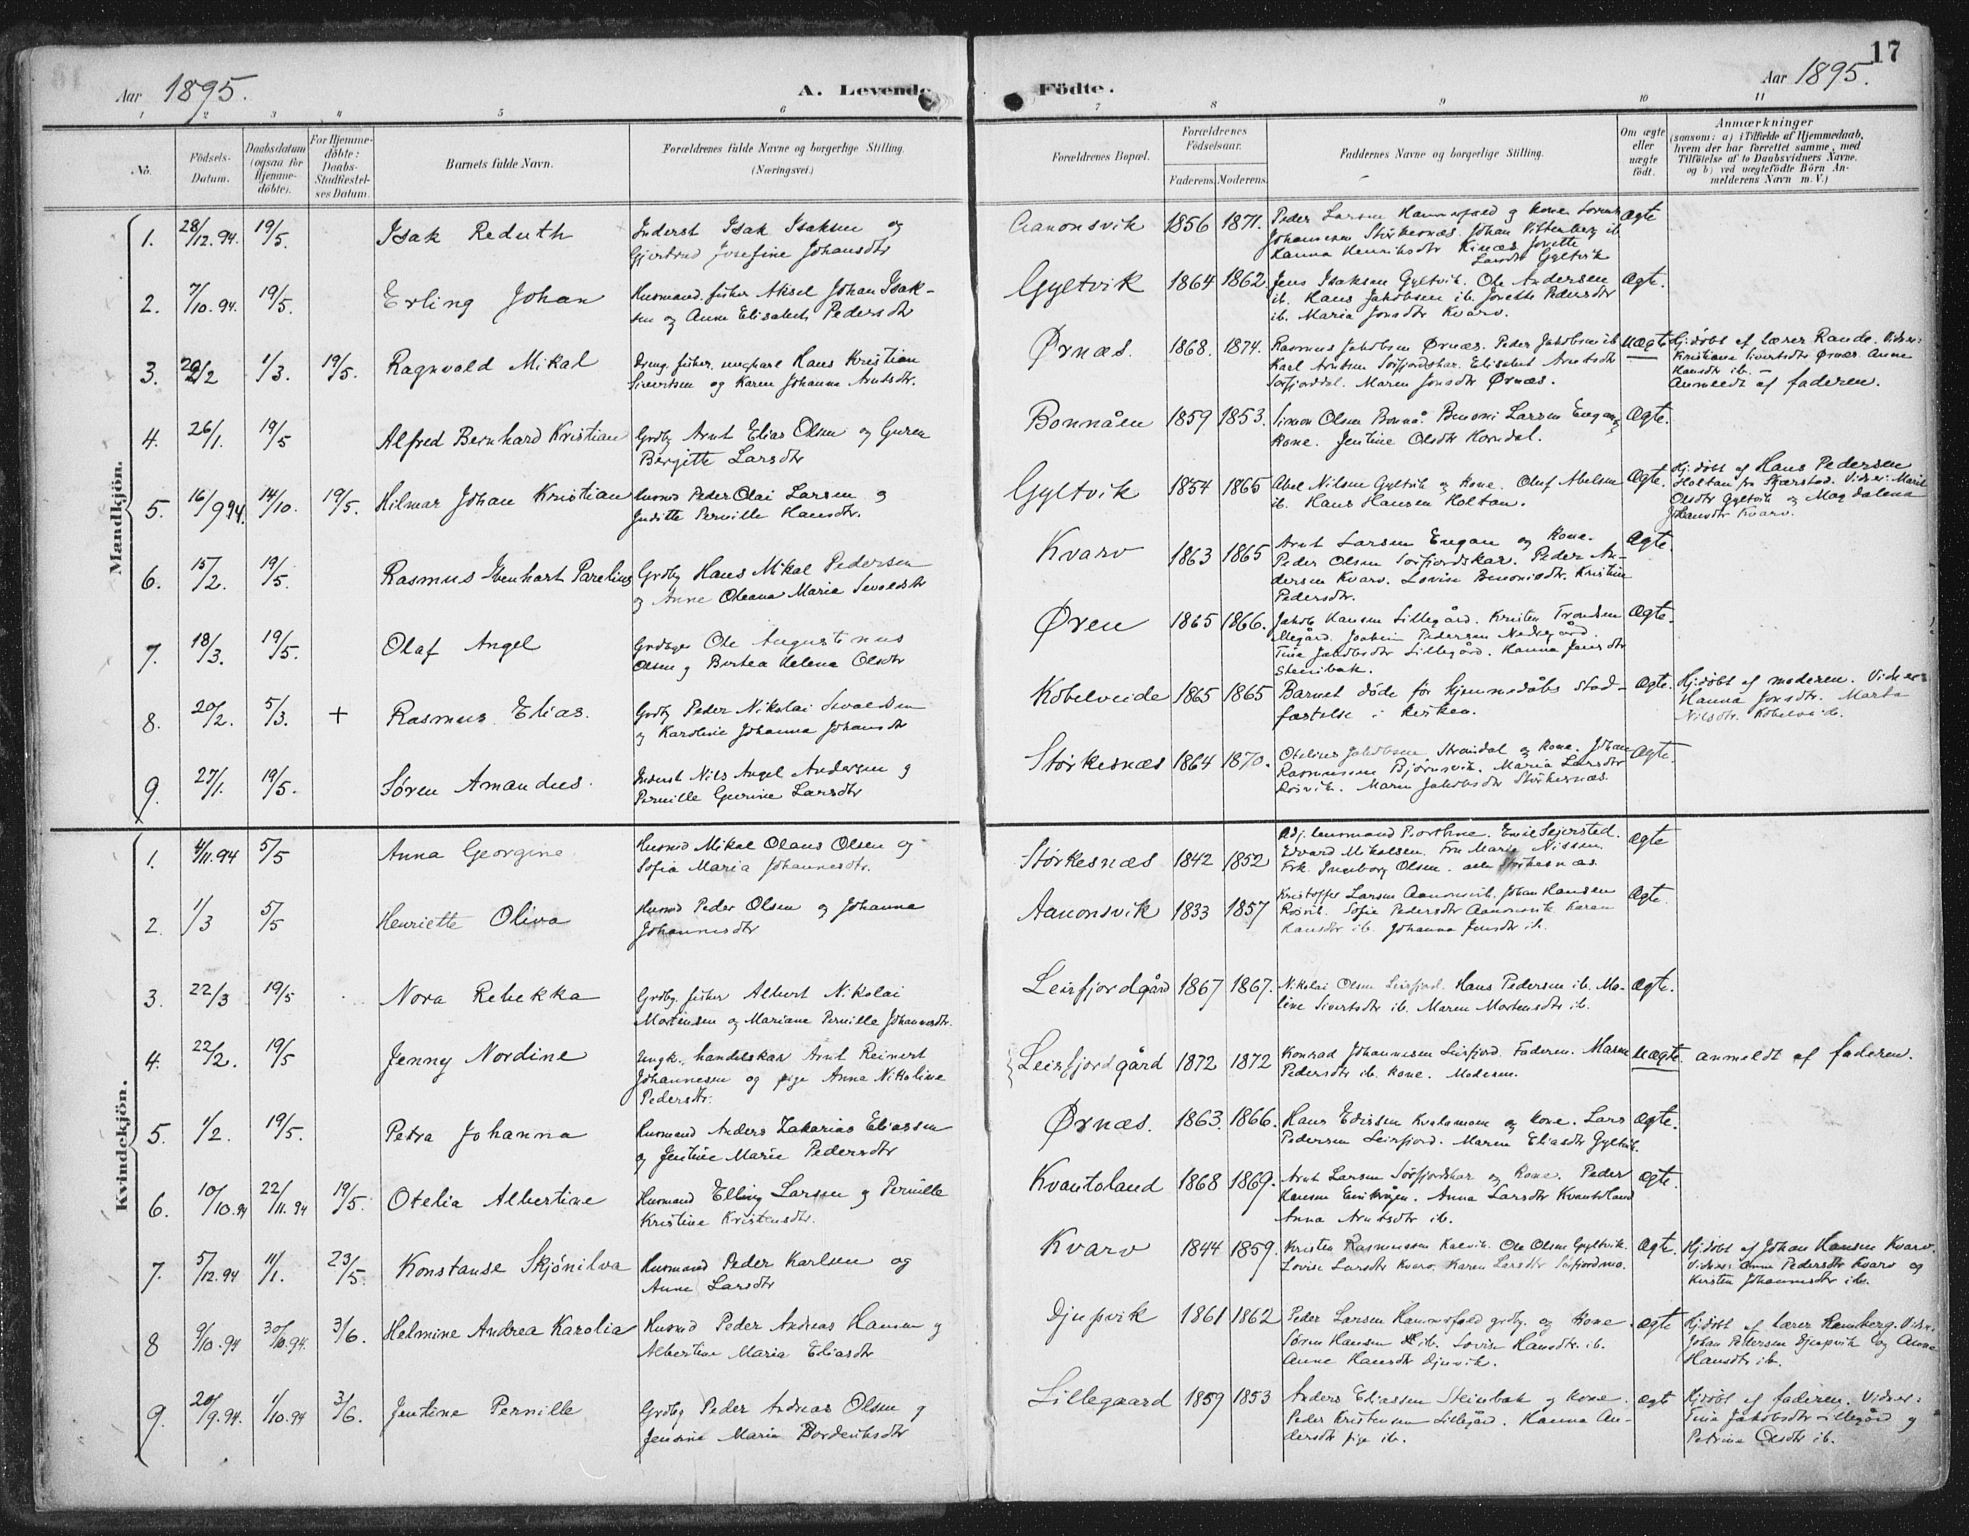 17
Aar 1895. A. Levende Födte. Aar 1895.
1 2 3 4 5 6 7 8 9 10 11
No. Födsels-Datum. Daabsdatum (ogsaa for Hjemmedöbte). For Hjemmedöbte: Daabs-Stadfæstelses Datum. Barnets fulde Navn. Forældrenes fulde Navne og borgerlige Stilling. (Næringsvei.) Forældrenes Bopæl. Forældrenes Födselsaar. Faderens. Moderens. Faddernes Navne og borgerlige Stilling. Om ægte eller uægte födt. Anmærkninger (saasom: a) i Tilfælde af Hjemmedaab, hvem der har forrettet samme, med Tilföielse af to Daabsvidners Navne, og b) ved uægtefödte Börn Anmelderens Navn m. V.)
Mandkjön.
1. 28/12.94. 19/5. Isak Reduth Inderst Isak Isaksen og Aanonsvik 1856 1871. Peder Larsen Hammerfæld og kone Lorents ægte
Gjertrud Josefine Johansdtr Johannesen Störkesnæs. Johan Vitterberg ib.
Hanna Henriksdtr Kinæs. Jonette
Larsdtr Gyltvik
2. 7/10.94. 19/5. Erling Johan Husmand. fisker Aksel Johan Isak- Gyltvik 1864 1862. Jens Isaksen Gyltvik. Ole Andersen ægte.
sen og Anne Elisabeth Pedersdtr ib. Hans Jakobsen ib. Jonette Pedersdtr
ib. Maria Jonsdtr Kvarv.
3. 1/3. 19/5. Ragnvald Mikal fisker, ungkarl Hans Kristian Ørnæs. 1868. 1874. Rasmus Jakobsen Ørnæs. Peder Jakobsen ib uægte Hj.döbt af lærer Rande. Vidner:
Sivertsen og Karen Johanna Arntsdtr. Karl Arntsen Sörfjordskar. Elisabet Arntsdtr Kristiane Sivertsdtr Ørnæs. Anne
Sörfjorddal. Maren Jonsdtr Ørnæs. Hansdtr ib. –
Anmeldt af faderen.
4. 26/1. 19/5 Alfred Bernhard Kristian Grdby Arnt Elias Olsen og Guren Bonnåen 1859 1853. Simon Olsen Bonnå. Benoni Larsen Engan og ægte.
Bergitte Larsdtr kone. Jentine Olsdtr Horndal.
5. 16/9 94. 14/10. 19/5. Hilmar Johan Kristian Husmd Peder Olai Larsen og Gyltvik 1854 1865 Abel Nilsen Gyltvik og kone. Oluf Abelsen ægte. Hj.döbt af Hans Pedersen
Juditte Pernille Hansdtr. ib. Hans Hansen Holtan. Holtan fra Skjærstad. Vidner: Marit
Olsdtr Gyltvik og Magdalena
Johansdtr Kvarv.
6. 15/2. 19/5. Rasmus Ibenhart Parelius Grdby Hans Mikal Pedersen Kvarv 1863 1865 Arnt Larsen Engan og kone. ægte.
og Anne Oleana Maria Sevaldsdtr Peder Olsen Sörfjordskar. Peder An-
dersen Kvarv. Lovise Benonisdtr. Kristine
Pedersdtr.
7. 18/3. 19/5. Olaf Angel Grdbyer Ole Augustinus Øren 1865 1866. Jakob Hansen Lillegård. Kristen Trondsen ægte.
Olsen og Bertea Helena Olsdtr llegård. Joakim Pedersen Nedregård.
Tina Jakobsdtr Lillegård. Hanna Jensdtr
Stenibak.
8. 20/2. 5/3. + Rasmus Elias. Grdby Peder Nikolai Sevaldsen Kobelveide 1865 1865 Barnet döde för hjemmedåbs stad- ægte. Hj.döbt af moderen. Vidner:
og Karoline Johanna Johansdtr fæstelse i kirken. Hanna Jonsdtr. Marta
Nilsdtr. Kobelveide.
9. 27/1. 19/5. Søren Amandus. Inderst Nils Angel Andersen og Störkesnæs 1864 1870. Otelius Jakobsen Strandal og kone. Johan ægte.
Pernille Gurine Larsdtr Rasmussen Bjørnsvik. Maria Larsdtr
Rösvik. Maren Jakobsdtr Störkesnæs.
Kvindekjön.
1. 4/11.94 5/5 Anna Georgine Husmd Mikal Olaus Olsen og Störkesnæs 1842 1852 Adj. lensmand. Emil Sejersted. ægte
Sofia Maria Johannesdtr. Edvard Mikalsen. Fru Marie Nissen.
Frk. Ingeborg Olsen. alle Störkesnæs.
2. 1/3 5/5 Henriette Oliva Husmd Peder Olsen og Johanna Aanonsvik 1833 1857 Kristoffer Larsen Aanonsvik. Johan Hansen ægte.
Johannesdtr Rösvik. Sofie Pedersdtr Aanonsvik. Karen
Hansdtr ib. Johanna Jensdtr ib.
3. 22/3 19/5 Nora Rebekka Grdby. fisker Albert Nikolai Leirfjordgård 1867 1867. Nikolai Olsen Leirfjord. Hans Pedersen ib. Ma- ægte.
Mortensen og Mariane Pernille Johannesdtr. line Sivertsdtr ib. Maren Mortensdtr ib.
4. 22/2. 19/5 Jenny Nordine Ungk. handelskar Arnt Reinert Leirfjordgård 1872 1872 Konrad Johannesen Leirfjord. Faderen. Maren uægte. anmeldt af faderen.
Johannesen og pige Anna Nikoline Pedersdtr ib. kone. Moderen.
Pedersdtr.
5. 1/2. 19/5. Petra Johanna Husmand Anders Zakarias Eliassen Ørnæs. 1863. 1866. Hans Edissen og kone. Lars ægte.
og Jentine Marie Pedersdtr Pedersen Leirfjord. Maren Eliasdtr Gyltvik.
6. 10/10.94 22/11.94 19/5. Otelia Albertine Husmand Elling Larsen og Pernille Kvantoland 1868 1869. Arnt Larsen Sörfjordskar og kone. Peder ægte.
Kristine Kristensdtr. Hansen. Anna Larsdtr Kvantoland
Anna Arntsdtr ib.
7. 5/12.94 11/1. 23/5. Konstanse Skjönilva Husmand Peder Karlsen og Kvarv 1844 1859. Kristen Rasmussen Kalvik. Ole Olsen Gyltvik. ægte. Hj.döbt af Johan Hansen Kvarv.
Anne Larsdtr Lovise Larsdtr Kvarv. Karen Larsdtr Sörfjordmo. Vidner: Anne Pedersdtr Kvarv og
Kirsten Johannesdtr ib.
8 9/10.94 30/10.94. 3/6. Helmine Andrea Karolia Husmd Peder Andreas Hansen og Djupvik 1861 1862 Peder Larsen Hammerfæld grdby. og kone. ægte Hj.döbt af lærer Ramberg. Vidn:
Albertine Maria Eliasdtr Søren Hansen ib. Lovise Hansdtr. ib. Johan Pettersen Djupvik og Anne
Anne Hansdtr Djupvik. Hansdtr ib.
9. 20/9.94. 1/10.94 3/6. Jentine Pernille Grdby Peder Andreas Olsen og Lillegaard 1859 1853 Anders Eliassen Steinbak og kone. ægte Hj.döbt af faderen. Vidner:
Jensine Maria Bordeviksdtr Peder Kristensen Lillegård. Hanna An- Tina Jakobsdtr Lillegård og
dersdtr pige ib. Petrine Olsdtr ib.